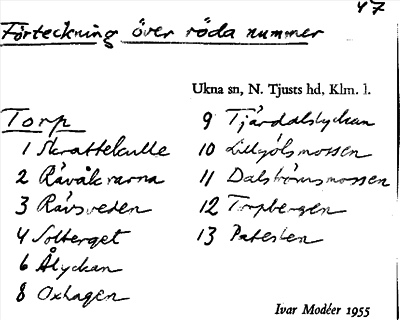 47
Förteckning över röda nummer
Ukna sn, N. Tjusts hd, Klm. l.
Torp
1 Skrattekulle
2 Råvåkrarna
3 Rävsveden
4 Solberget
6 Ålyckan
8 Oxhagen
9 Tjärdalslyckan
10 Lillgölsmossen
11 Dalströmsmossen
12 Torpbergen
13 Patesten
Ivar Modéer 1955